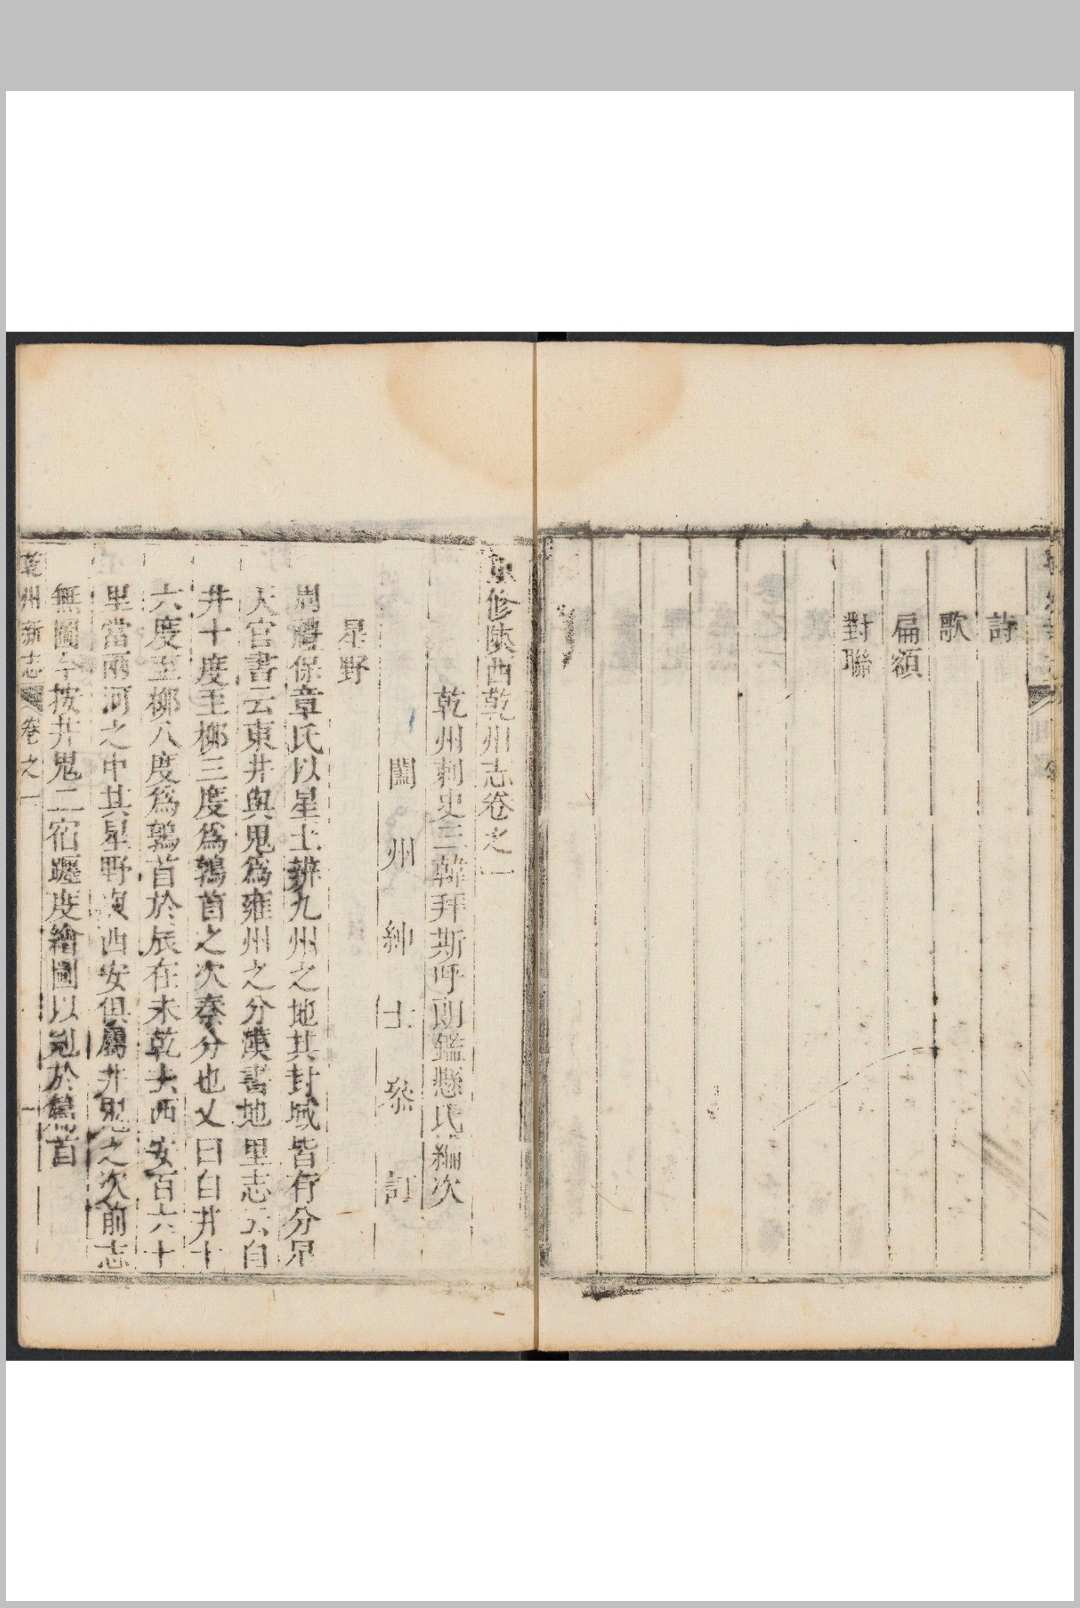 詩
歌
扁額
對聯
重修陝西乾州志卷之一
乾州刺史三韓拜斯呼朗鑑懸氏編次
闔州紳士叅訂
星野
周禮保章氏以星土辨九州之地其封域皆有分星
天官書云東井與鬼爲雍州之分漢書地里志云自
井十度至柳三度爲鶉首之次秦分也又曰自井十
六度至柳八度爲鶉首於辰在未乾去西安百六十
里當兩河之中其星野與西安俱屬井鬼之次前志
無圖今按井鬼二宿躔度繪圖以冠於篇首
乾州新志 卷之一 一